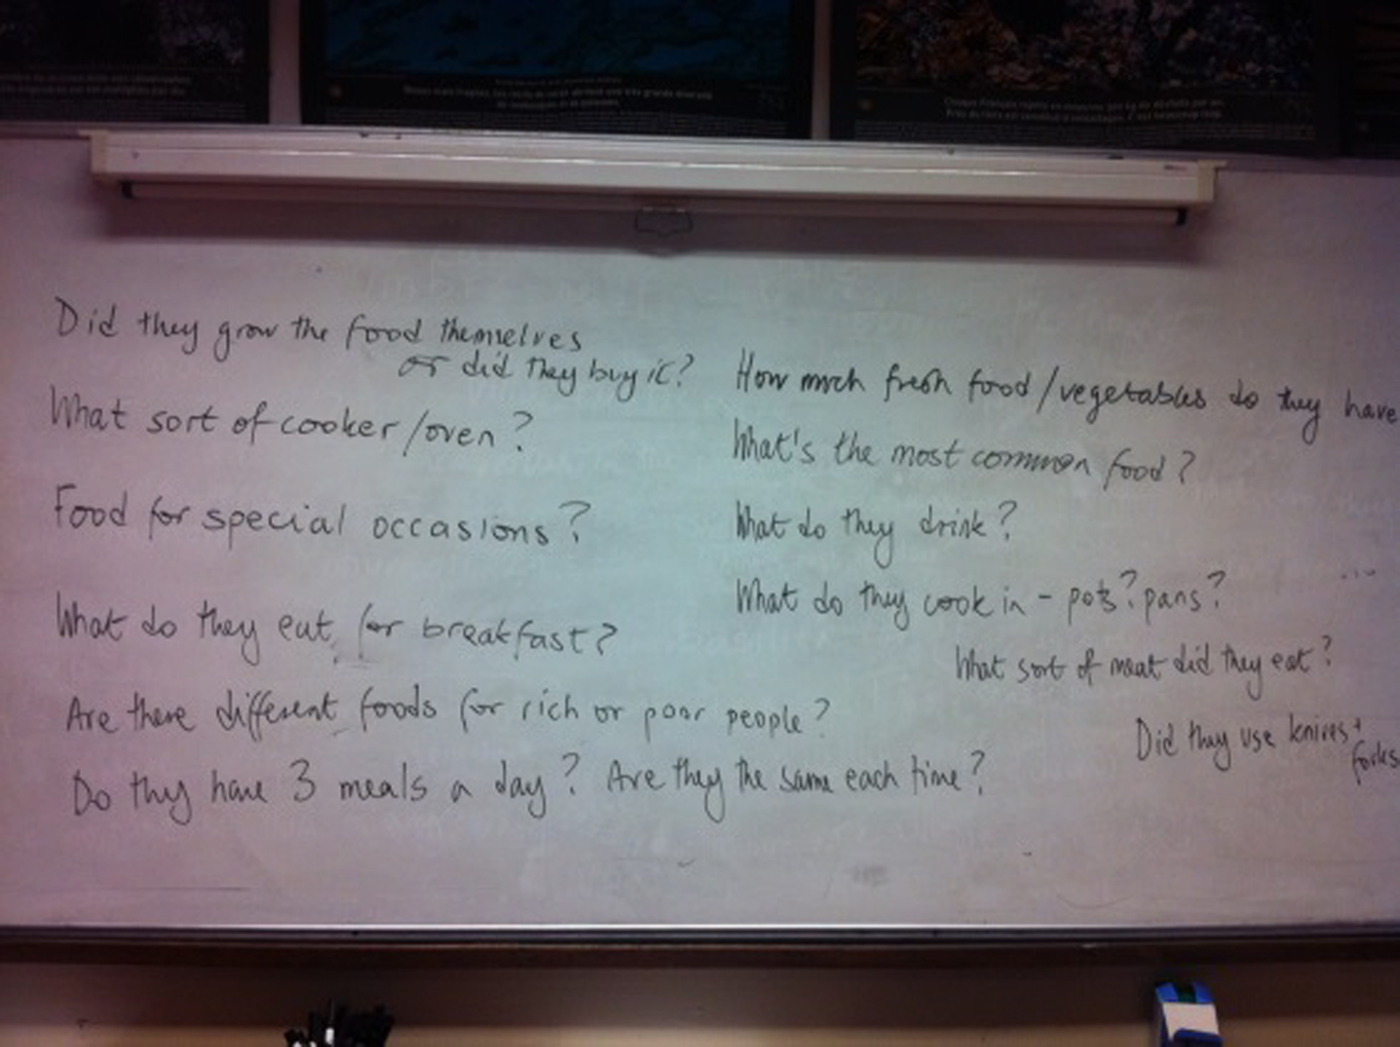 Did they grow the food themselves
or did they buy it?
What sort of cooker/oven?
Food for special occasions?
What do they eat for breakfast?
Are there different foods for rich or poor people?
Do they have 3 meals a day? Are they the same each time?
How much fresh food/vegetables do they have
What's the most common food?
What do they drink?
What do they cook in - pots? pans?
What sort of meat did they eat?
Did they use knives +
forks